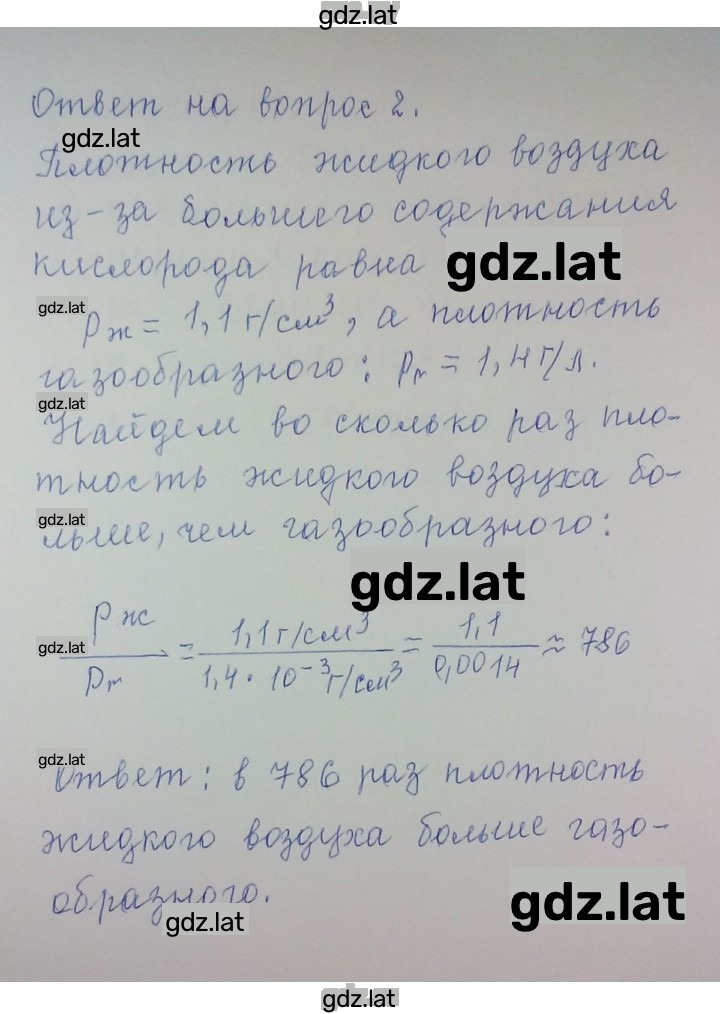 gdz.lat
Ответ на вопрос 2.
gdz.lat
Плотность жидкого воздуха
из-за большего содержания
кислорода равна gdz.lat
gdz.lat
ρж = 1,1 г/см³, а плотность
газообразного: ρг = 1,4 г/л.
gdz.lat
Найдем во сколько раз пло-
тность жидкого воздуха бо-
gdz.lat
льше, чем газообразного:
gdz.lat
gdz.lat
ρж/ρг = 1,1 г/см³/1,4·10⁻³ г/см³ = 1,1/0,0014 ≈ 786
gdz.lat
Ответ: в 786 раз плотность
жидкого воздуха больше газо-
образного.
gdz.lat
gdz.lat
gdz.lat